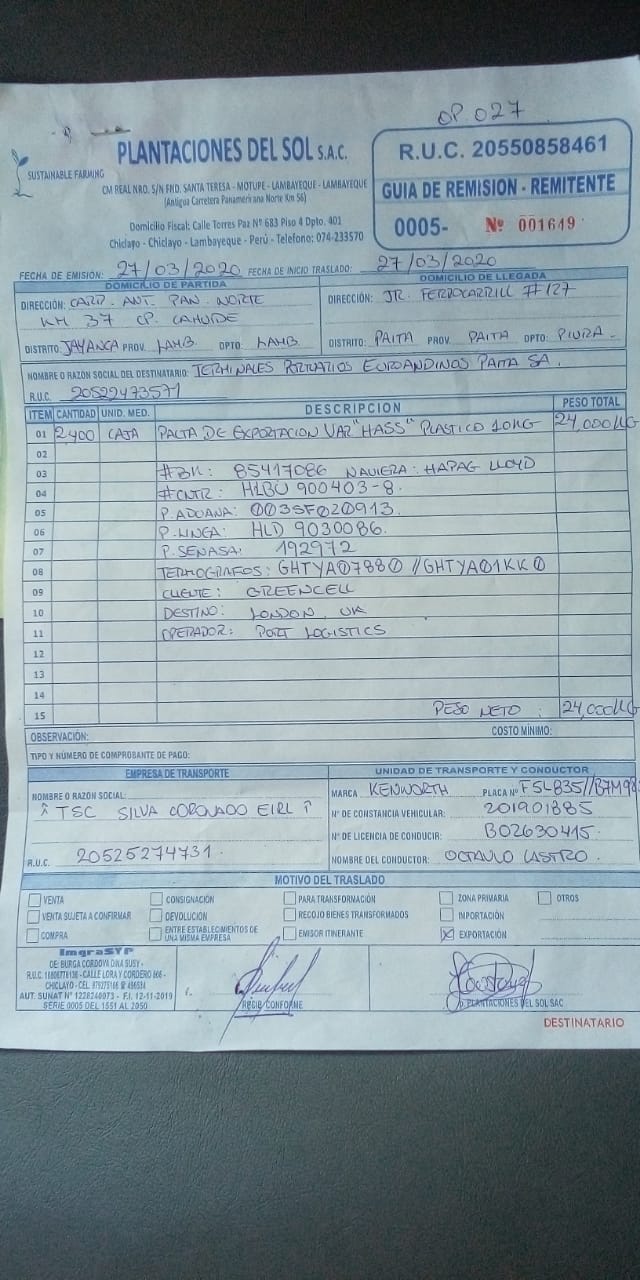 OP. 027
PLANTACIONES DEL SOL S.A.C.
SUSTAINABLE FARMING
CM REAL NRO. S/N FND. SANTA TERESA - MOTUPE - LAMBAYEQUE - LAMBAYEQUE
(Antigua Carretera Panamericana Norte Km 56)
Domicilio Fiscal: Calle Torres Paz Nº 683 Piso 4 Dpto. 401
Chiclayo - Chiclayo - Lambayeque - Perú - Telefono: 074-233570
R.U.C. 20550858461
GUIA DE REMISION - REMITENTE
0005- Nº 001649
FECHA DE EMISIÓN: 27/03/2020 FECHA DE INICIO TRASLADO: 27/03/2020
DOMICILIO DE PARTIDA
DIRECCIÓN: CARR. ANT. PAN. NORTE
KM 37 CP. CAHUIDE
DISTRITO: JAYANCA PROV. LAMB. DPTO: LAMB.
DOMICILIO DE LLEGADA
DIRECCIÓN: JR. FERROCARRILL #127
DISTRITO: PAITA PROV. PAITA DPTO: PIURA.
NOMBRE O RAZÓN SOCIAL DEL DESTINATARIO: TERMINALES PORTUARIOS EUROANDINOS PAITA SA.
R.U.C. 20522473571
ITEM CANTIDAD UNID. MED. DESCRIPCION PESO TOTAL
01 2,400 CAJA PALTA DE EXPORTACION VAR "HASS" PLASTICO 10KG 24,000KG
02
03 #BK: 85417086 NAVIERA: HAPAG LLOYD
04 #CNTR: HLBU 900403-8.
05 P. ADUANA: 003SF020913.
06 P. LINEA: HLD 9030086.
07 P. SENASA: 192972
08 TERMOGRAFOS: GHTYA07880 // GHTYA01KK0
09 CLIENTE: GREENCELL
10 DESTINO: LONDON, UK
11 OPERADOR: PORT LOGISTICS
12
13
14
15 PESO NETO: 24,000KG
OBSERVACIÓN: COSTO MÍNIMO:
TIPO Y NÚMERO DE COMPROBANTE DE PAGO:
EMPRESA DE TRANSPORTE
NOMBRE O RAZÓN SOCIAL:
TSC SILVA CORONADO EIRL
R.U.C. 20525274731.
UNIDAD DE TRANSPORTE Y CONDUCTOR
MARCA KENWORTH PLACA Nº F5L835//B7M98
Nº DE CONSTANCIA VEHICULAR: 201901885
Nº DE LICENCIA DE CONDUCIR: B02630415.
NOMBRE DEL CONDUCTOR: OCTAVIO CASTRO.
MOTIVO DEL TRASLADO
VENTA CONSIGNACIÓN PARA TRANSFORMACIÓN ZONA PRIMARIA OTROS
VENTA SUJETA A CONFIRMAR DEVOLUCIÓN RECOJO BIENES TRANSFORMADOS IMPORTACIÓN
COMPRA ENTRE ESTABLECIMIENTOS DE UNA MISMA EMPRESA EMISOR ITINERANTE EXPORTACIÓN
ImgraSYP
DE: BURGA CORDOVA DINA SUSY -
CALLE LORA Y CORDERO
AUT. SUNAT Nº 1228240073 - F.I. 12-11-2019
SERIE 0005 DEL 1551 AL 2050
RECIBI CONFORME
P. PLANTACIONES DEL SOL SAC
DESTINATARIO